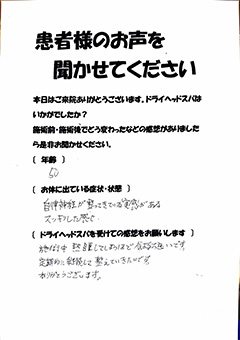 患者様のお声を
聞かせてください
本日はご来院ありがとうございます。ドライヘッドスパは
いかがでしたか?
施術前・施術後でどう変わったなどの感想がありました
ら是非お聞かせください。
( 年齢 )
50
( お体に出ている症状・状態 )
自律神経が整ってきている実感がある
スッキリした感じ
( ドライヘッドスパを受けての感想をお願いします )
施術中 熟睡してしまうほど
定期的に継続して整えていきたいです
ありがとうございます。